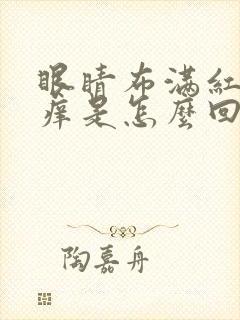 眼睛布满紅
痒是怎麽回
陶嘉舟